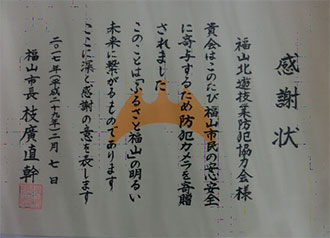 感謝状
福山北遊技業防犯協力会様
貴会はこのたび福山市民の安心安全
に寄与するため防犯カメラを寄贈
されました
このことは「ふるさと福山」の明るい
未来に繋がるものであります
ここに深く感謝の意を表します
二〇一七年(平成二十九年)二月七日
福山市長 枝廣直幹